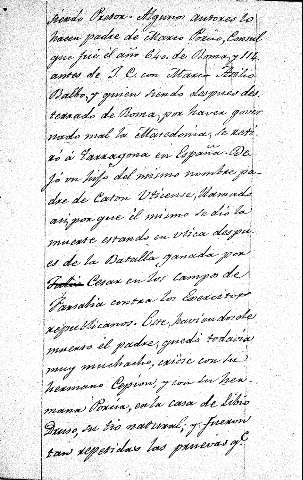 siendo Pretor. Algunos autores lo
hacen padre de Marco Porcio, Consul
que fué el año 640. de Roma, y 114.
antes de J. C. con Marco Atilio
Balbo, y quien siendo despues des-
terrado de Roma, por haver gover
nado mal la Macedonia, se reti
ró á Tarragona en España. De
jó un hijo del mismo nombre, pa
dre de Caton Uticense, llamado
asi, por que él mismo se dió la
muerte estando en Utica despu
es de la Batalla ganada por
Cesar en los campos de
Farsalia contra los Exercitos
republicanos. Este, haviendosele
muerto el padre, quedó todavia
muy muchacho, criose con su
hermano Cepion, y con su her-
mana Porcia, en la casa de Libio
Druso, su tio natural; y fueron
tan repetidas las pruevas q.e